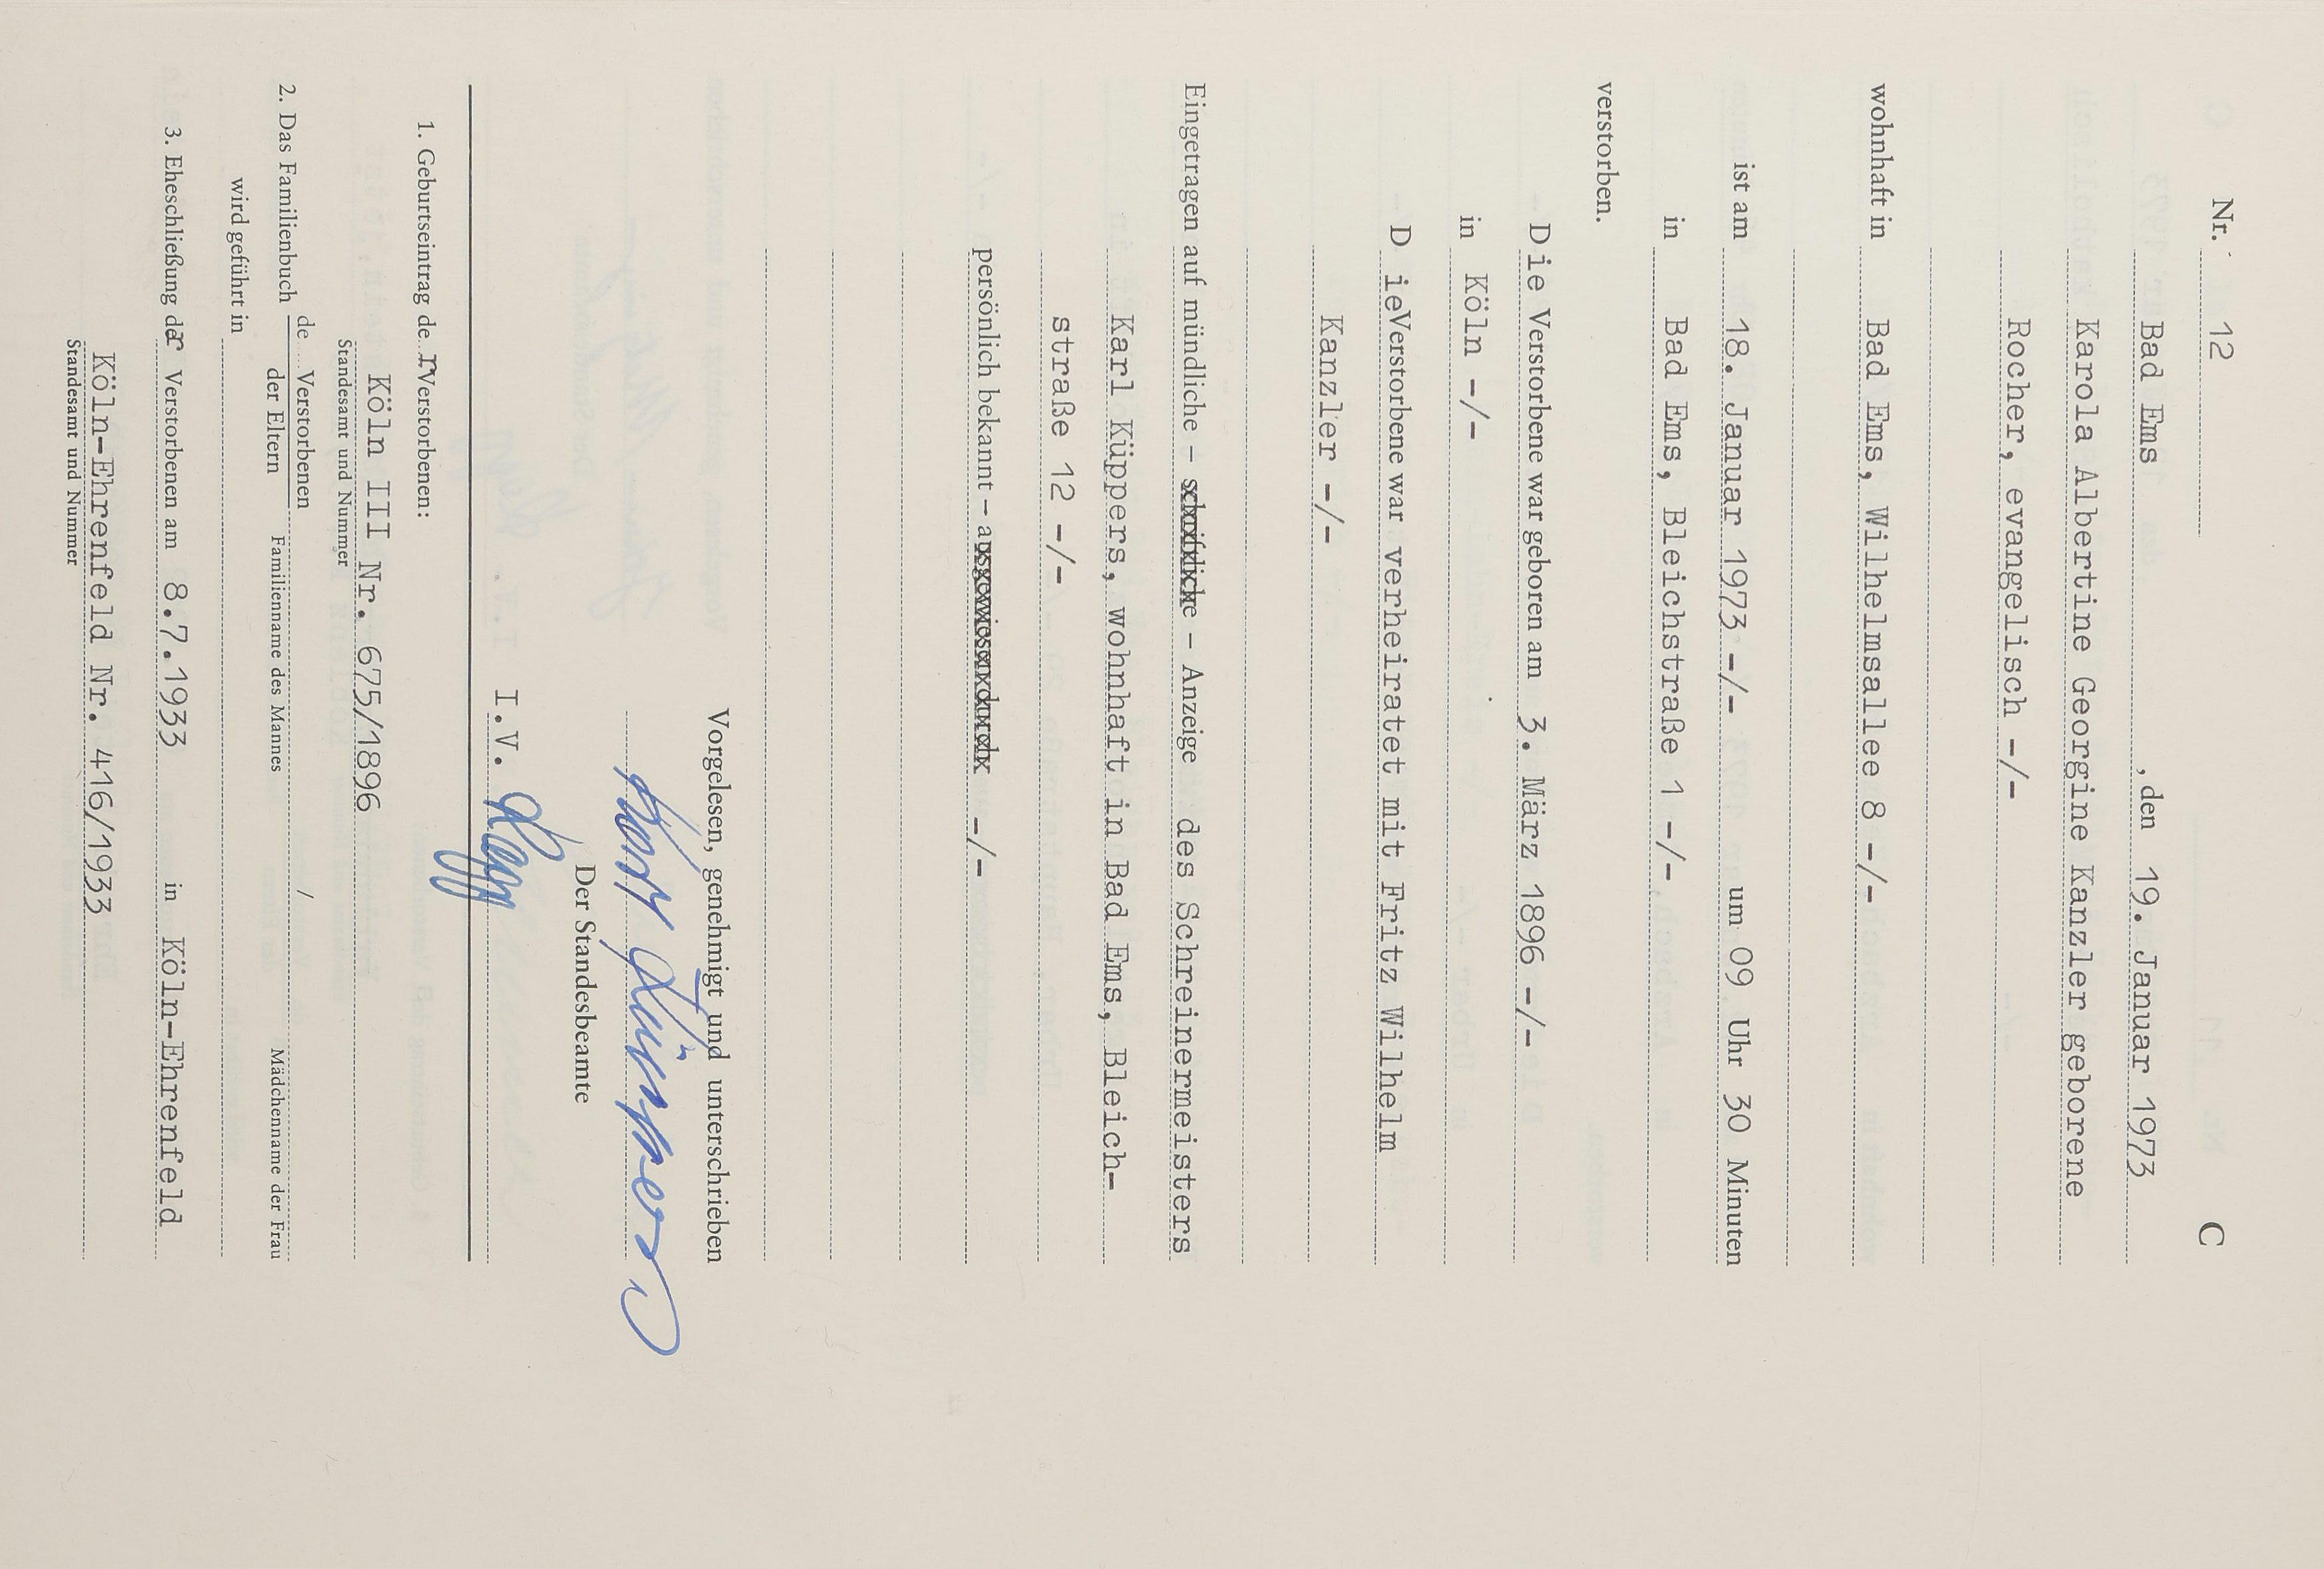 Nr. 12 C
Bad Ems , den 19. Januar 1973
Karola Albertine Georgine Kanzler geborene
Rocher, evangelisch -/-
wohnhaft in Bad Ems, Wilhelmsallee 8 -/-
ist am 18. Januar 1973 -/- um 09 Uhr 30 Minuten
in Bad Ems, Bleichstraße 1 -/-
verstorben.
Die Verstorbene war geboren am 3. März 1896 -/-
in Köln -/-
D ieVerstorbene war verheiratet mit Fritz Wilhelm
Kanzler -/-
Eingetragen auf mündliche – schriftliche – Anzeige des Schreinermeisters
Karl Küppers, wohnhaft in Bad Ems, Bleich-
straße 12 -/-
persönlich bekannt – ausgewiesen durch -/-
Vorgelesen, genehmigt und unterschrieben
Karl Küppers
Der Standesbeamte
I.V.
1. Geburtseintrag de r Verstorbenen:
Köln III Nr. 675/1896
Standesamt und Nummer
2. Das Familienbuch de Verstorbenen /
der Eltern Familienname des Mannes Mädchenname der Frau
wird geführt in
3. Eheschließung der Verstorbenen am 8.7.1933 in Köln-Ehrenfeld
Köln-Ehrenfeld Nr. 416/1933
Standesamt und Nummer